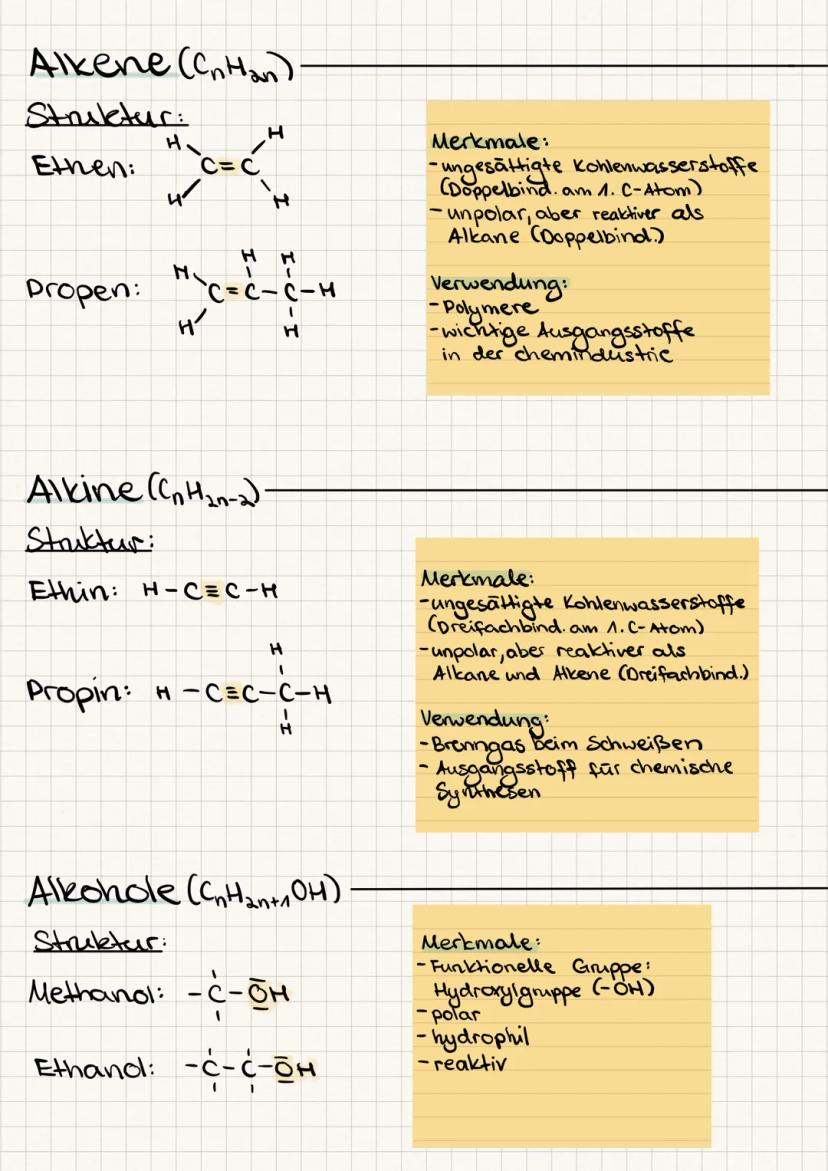 Alkene (CnH2n)
Struktur:
Ethen:
H H
C=C
H H
Propen:
H H H
C=C-C-H
H H
Merkmale:
- ungesättigte Kohlenwasserstoffe
(Doppelbind. am 1. C-Atom)
- unpolar, aber reaktiver als
Alkane (Doppelbind.)
Verwendung:
- Polymere
- wichtige Ausgangsstoffe
in der chemindustrie
Alkine (CnH2n-2)
Struktur:
Ethin: H-C≡C-H
H
Propin: H-C≡C-C-H
H
Merkmale:
- ungesättigte Kohlenwasserstoffe
(Dreifachbind. am 1. C-Atom)
- unpolar, aber reaktiver als
Alkane und Alkene (Dreifachbind.)
Verwendung:
- Brenngas beim Schweißen
- Ausgangsstoff für chemische
Synthesen
Alkohole (CnH2n+1OH)
Struktur:
Methanol: -C-OH
Ethanol: -C-C-OH
Merkmale:
- Funktionelle Gruppe:
Hydroxylgruppe (-OH)
- polar
- hydrophil
- reaktiv